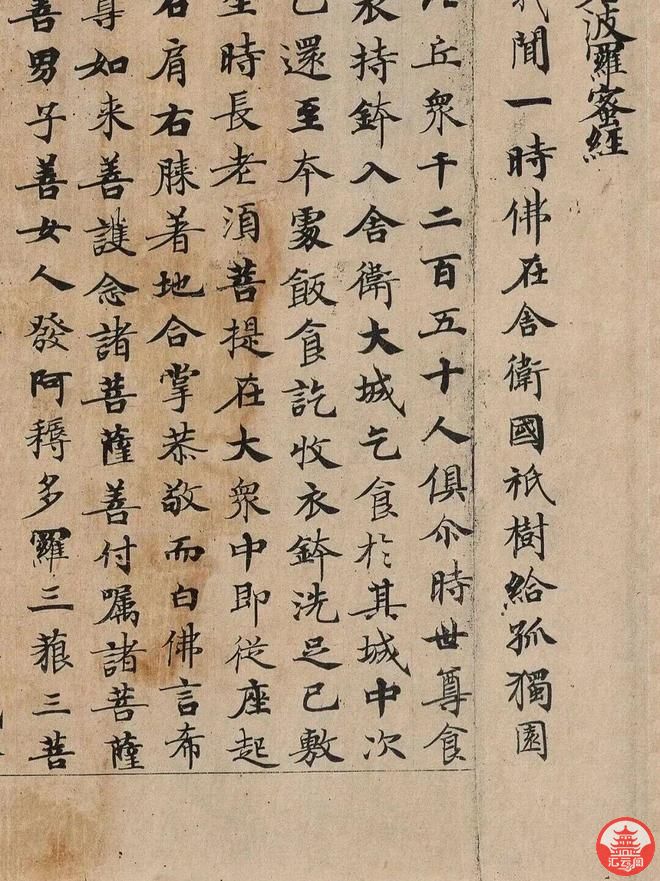 波羅蜜經
我聞一時佛在舍衛國祇樹給孤獨園
丘衆千二百五十人俱尒時世尊食
衣持鉢入舍衛大城乞食於其城中次
已還至本處飯食訖收衣鉢洗足已敷
時長老湏菩提在大衆中即從座起
右肩右膝著地合掌恭敬而白佛言希
尊如来善護念諸菩薩善付嘱諸菩薩
善男子善女人發阿耨多羅三藐三菩
汇云阁